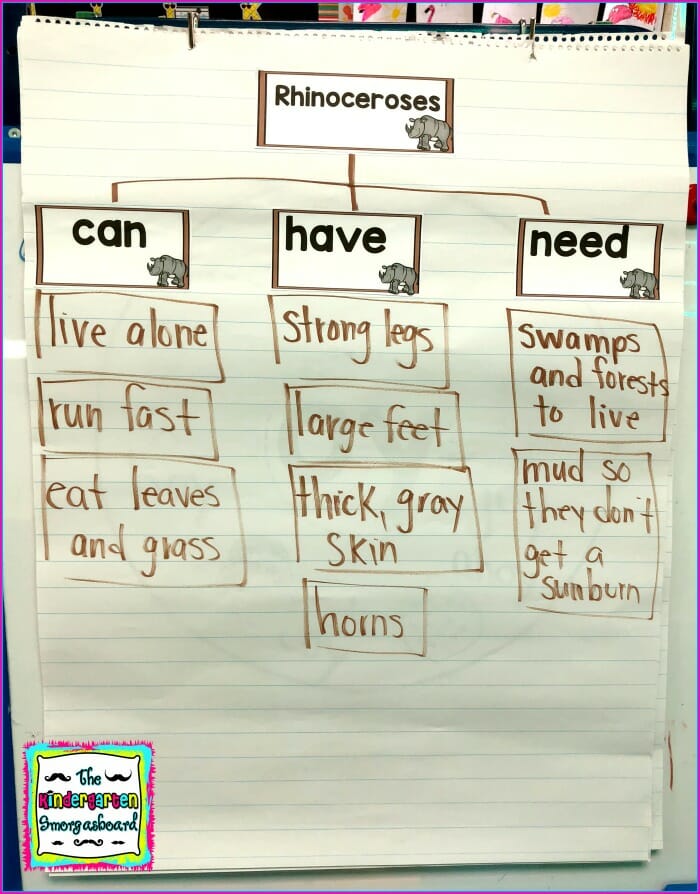 Rhinoceroses
can
live alone
run fast
eat leaves
and grass
have
strong legs
large feet
thick, gray
skin
horns
need
swamps
and forests
to live
mud so
they don't
get a
sunburn
The
Kindergarten
Smorgasboard